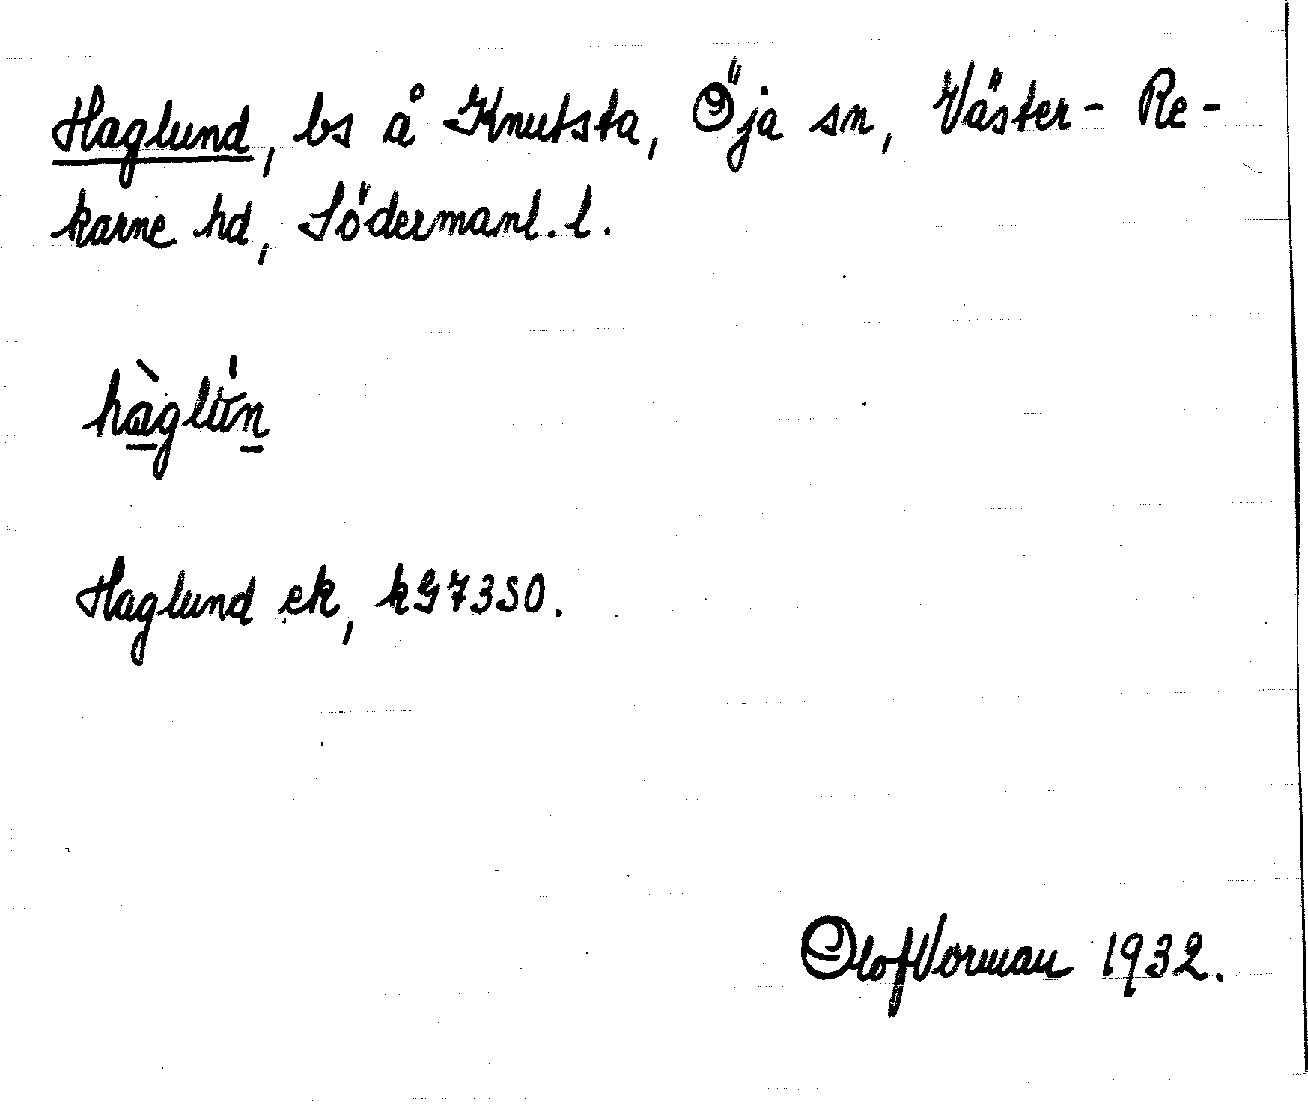 Haglund, bs å Knutsta, Öja sn, Väster-Re-
karne hd, Södermanl. l.
hàglún
Haglund ek, kG7350.
Olof Vorman 1932.